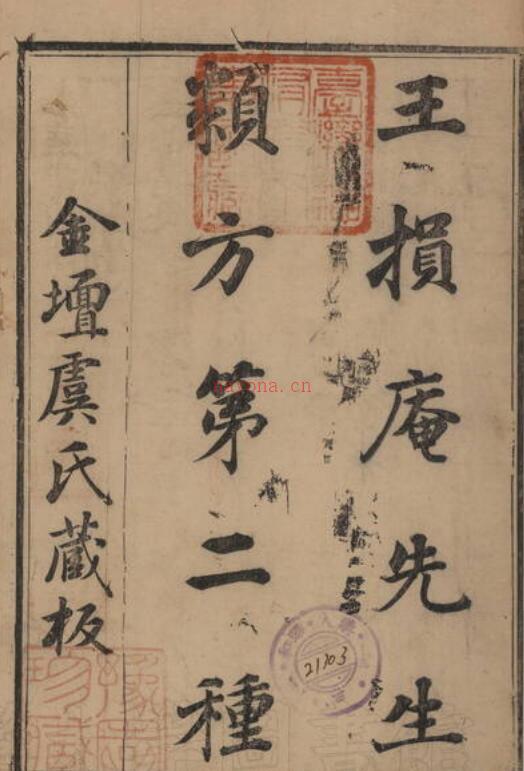 王損庵先生
類方第二種
金壇虞氏藏板
21303